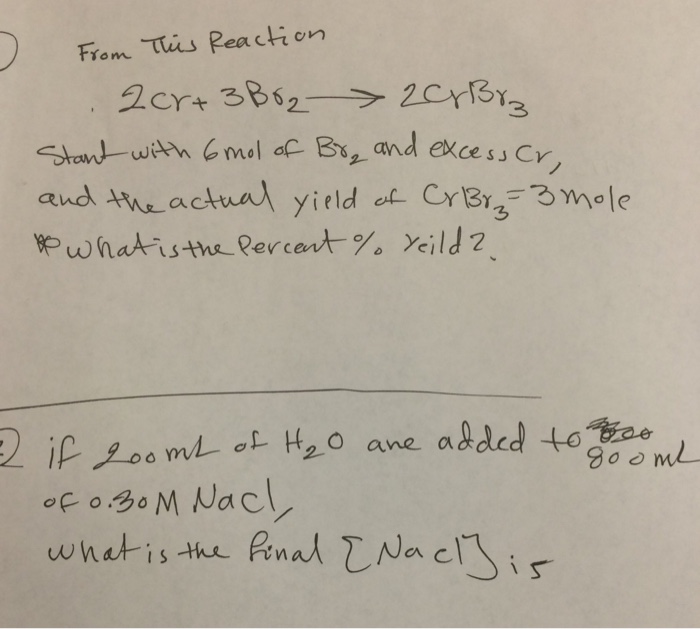 From This Reaction
2Cr + 3Br2 → 2CrBr3
Start with 6 mol of Br2 and excess Cr,
and the actual yield of CrBr3 = 3 mole
what is the Percent % Yeild ?
2) if 200 mL of H2O are added to
800 mL
of 0.30 M NaCl,
what is the final [NaCl] is